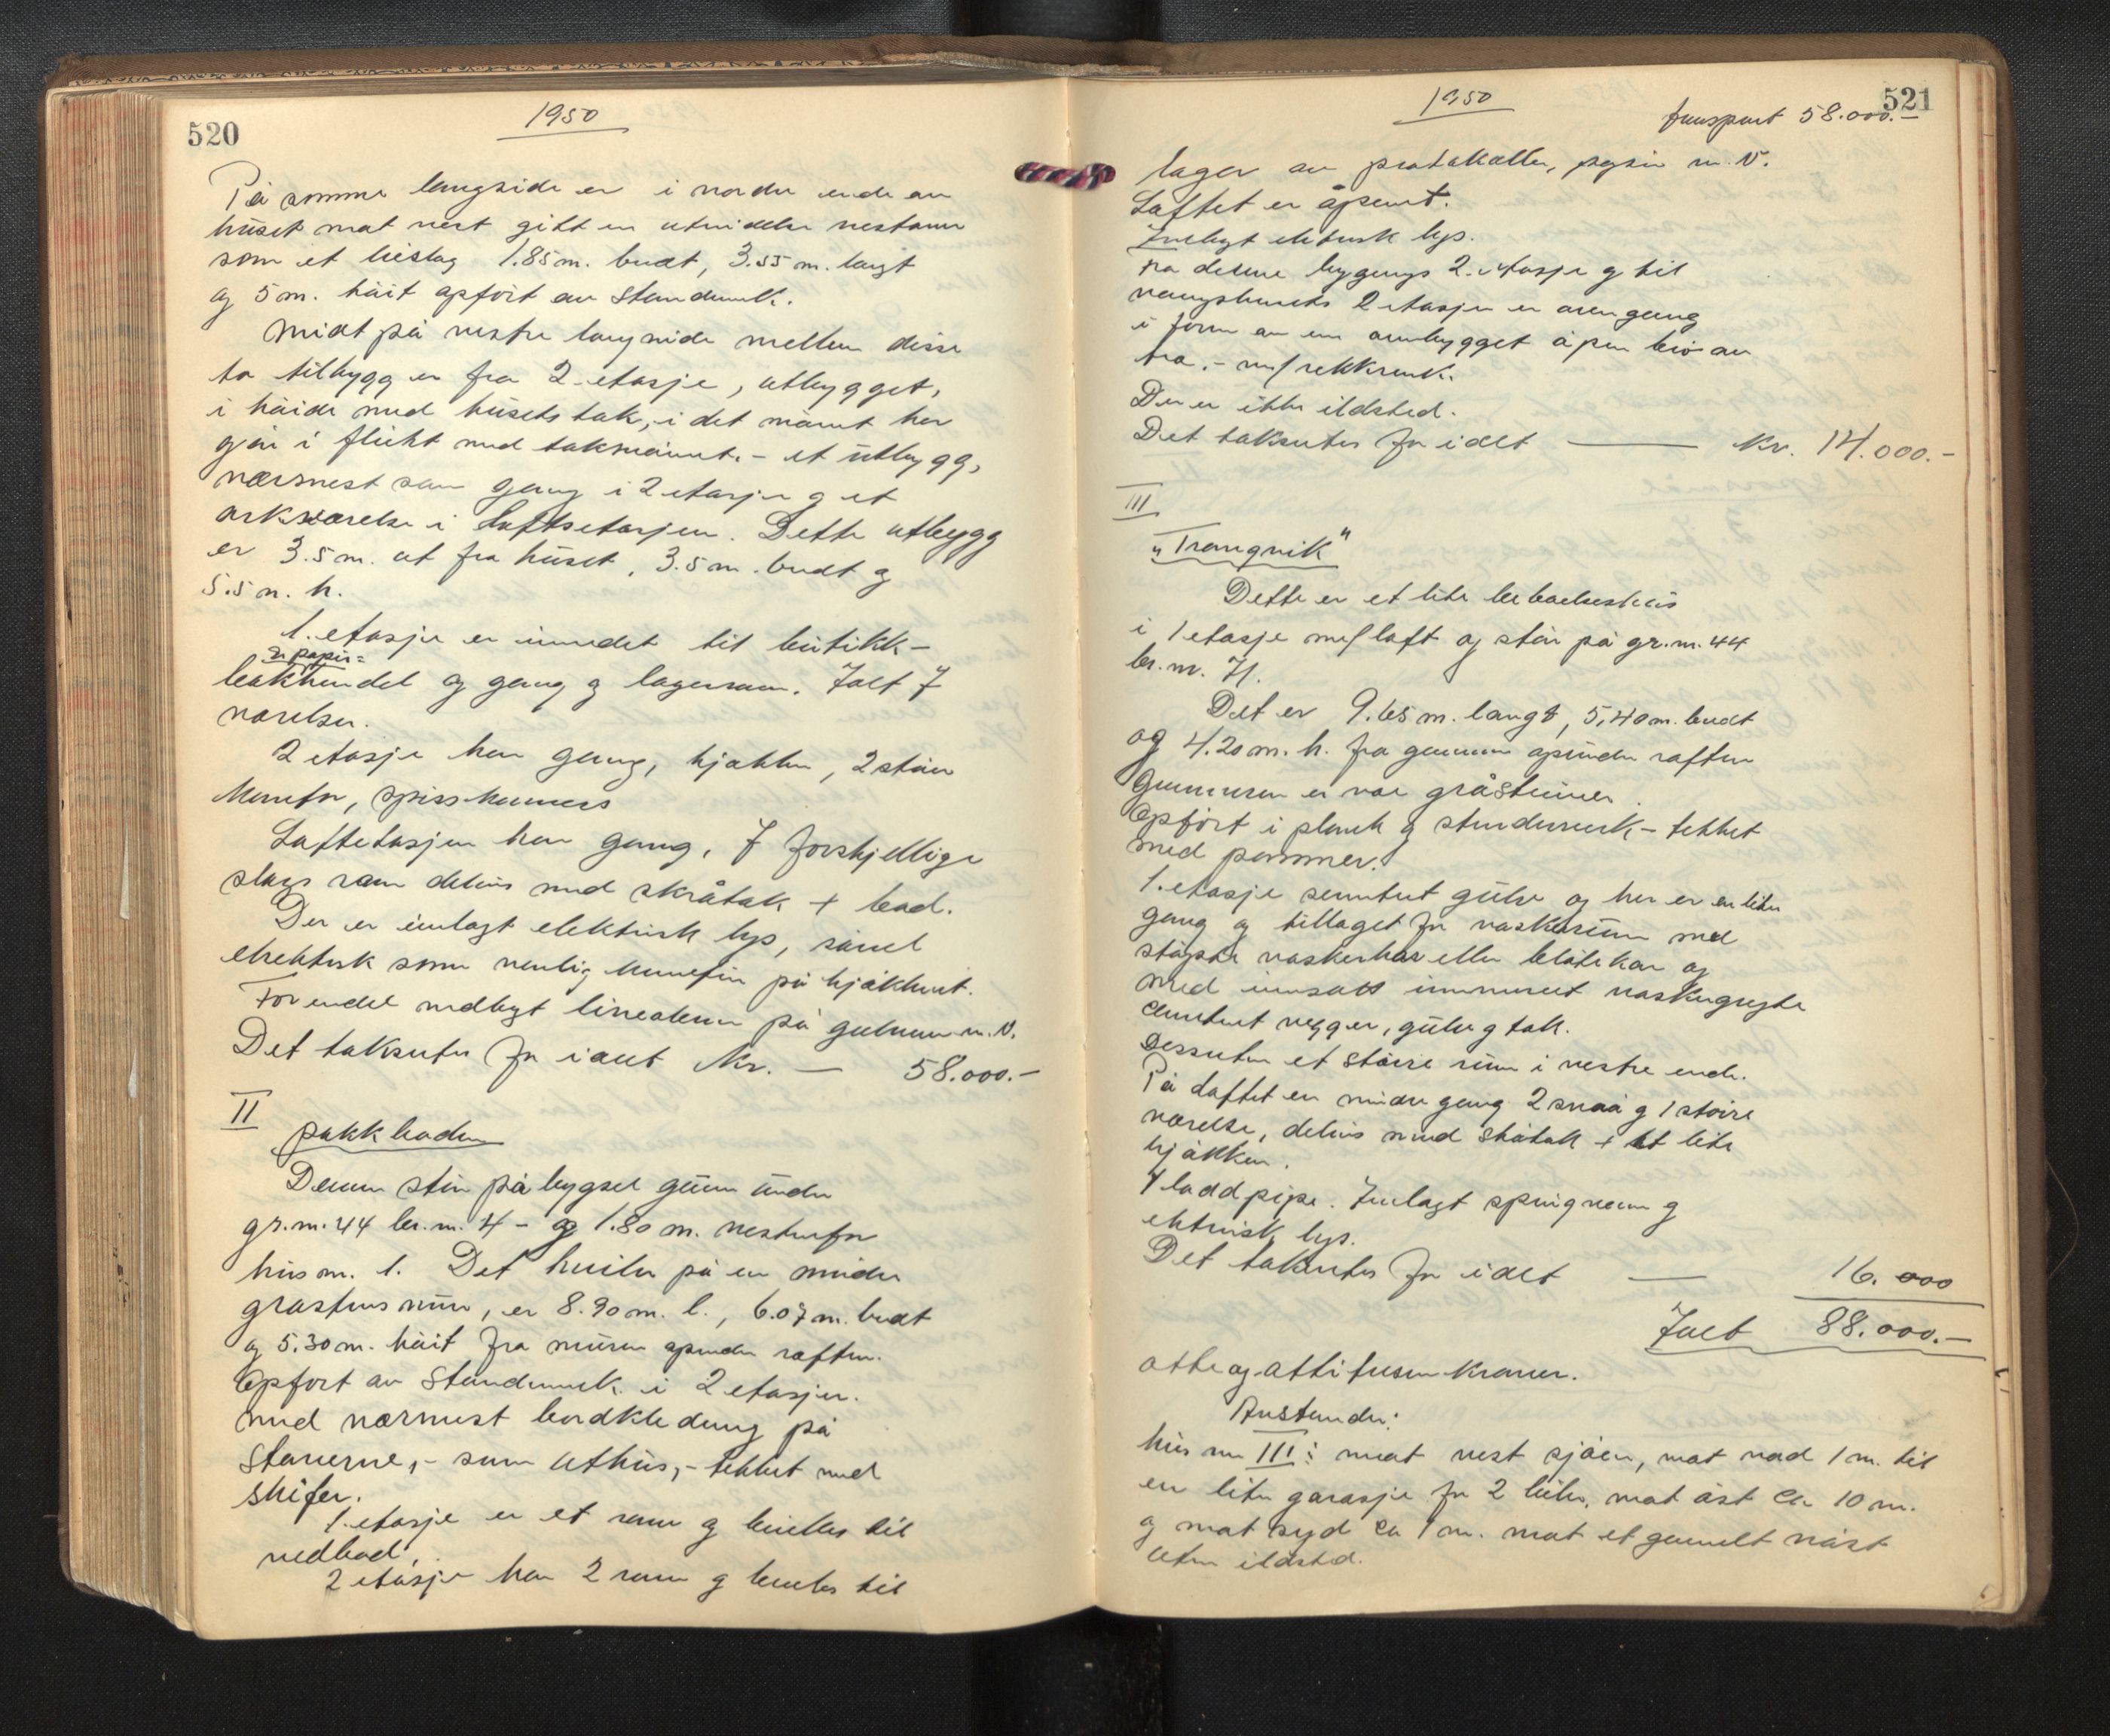 520
1950
På samme langside er i nordre ende av
huset mot vest gitt en utvidelse nestom
som et bislag 1.85 m. bredt, 3.55 m. langt
og 5 m. höit opfört av Stenderverk.
Midt på vestre langside mellem disse
to tilbygg er fra 2. etasje, utbygget,
i höide med husets tak, i det mönet her
går i flukt med takmönet. - et utbygg,
nærmest som gang i 2 etasje og et
arkværelse i loftsetasjen. Dette utbygg
er 3.5 m. ut fra huset, 3.5 m. bredt og
5.5 m. h.
1. etasje er innredet til butikk -
og papir=
bokhandel og gang og lagerrum. Ialt 7
værelser.
2 etasje har gang, kjökken, 2 stuer
kammer, spisskammers
Loftetasjen har gang, 7 forskjellige
slags rum delvis med skråtak + bad.
Der er innlagt elektrisk lys, såvel
elrektrisk som vanlig komfyr på kjökkenet.
For endel nedlagt linoleum på gulvene m.v.
Det takseres for i alt kr. — 58.000.-
II
pakkboden
Denne står på bygsel grunn under
gr.m. 44 br.m. 4 - og 1.80 m. vestenfor
hus nr. 1. Det hviler på en mindre
grastensmur, er 8.90 m. l., 6.07 m. bredt
og 5.30 m. höit fra muren op under raften.
Opfört av Stenderverk i 2 etasjer.
med nærmest bordkledning på
Stavene, - som uthus, - tekket med
skifer.
1. etasje er et rum og benttes til
vedbod.
2 etasje har 2 rum og benttes til
521
1950
transport 58.000.-
lager av protokoller, papir m.v.
Loftet er åpent.
Innlagt elektrisk lys.
Fra denne bygnings 2. etasje og til
vaangshusets 2 etasje er overgang
i form av en overbygget åpen bro av
tre. - m/ rekkverk.
Der er ikke ildsted.
Det takseres for i alt — kr. 14.000.-
III
„Trangvik"
Dette er et lite beboelseshus
i 1 etasje m/ loft og står på gr.m. 44
br.m. 71.
Det er 9.65 m. langt, 5,40 m. bredt
og 4.20 m. h. fra grunnen op under raften
Grunnmuren er av gråstein.
Opfört i plank og stenderverk - tekket
med panner.
1. etasje sementert gulv og her er en liten
gang og tillaget for vaskerum med
stöpte vaskerkar eller blötekar og
med innsatt innmuret vaskegryte
cementert vegger, gulv og tak.
Dessuten et större rum i vestre ende.
På loftet en mindre gang 2 små og 1 större
værelse, delvis med skråtak + et lite
kjökken.
1 ladd pipe. Innlagt springvann og
elektrisk lys.
Det takseres for i alt — 16.000
Ialt 88.000.-
otte og otti tusen kroner.
Avstander:
hus nr III: mot vest sjöen, mot nord 1 m. til
en liten garasje for 2 biler, mot öst ca 10 m.
og mot syd ca 1 m. mot et gammelt nöst
uten ildsted.